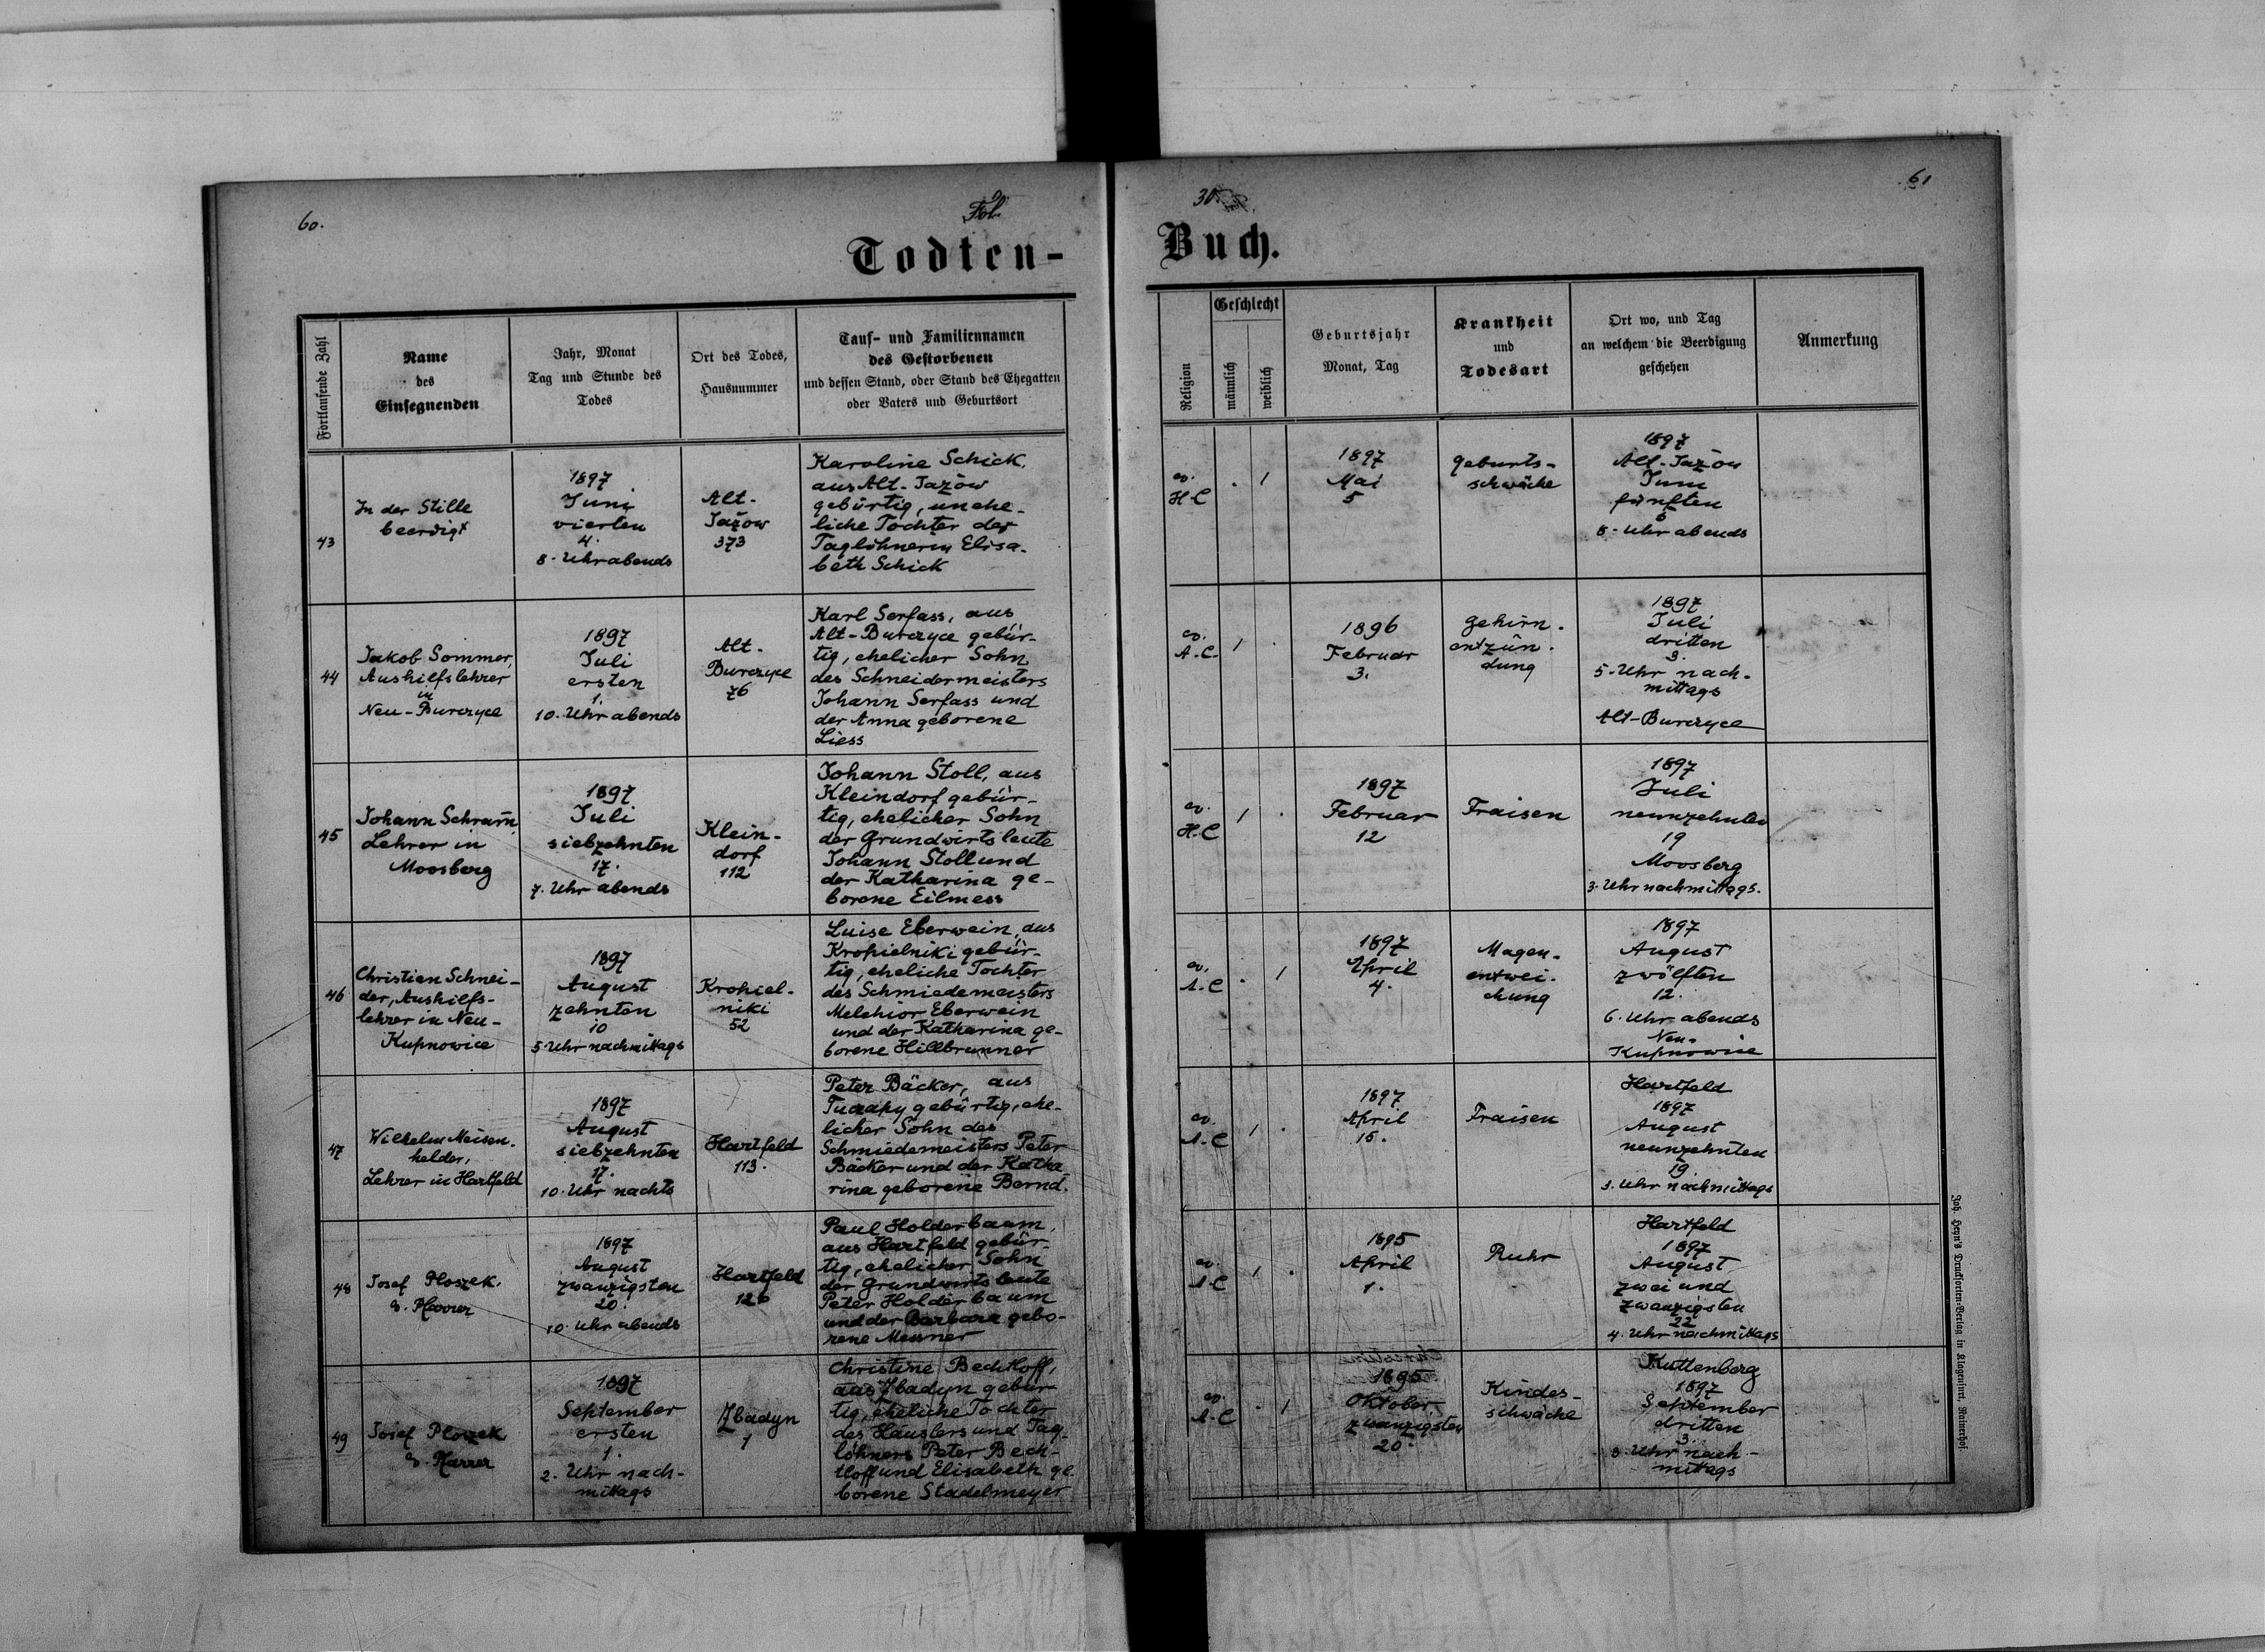 60.
Fol.
30.
61
Todten-
Buch.
Fortlaufende Zahl
Name
des
Einsegnenden
Jahr, Monat
Tag und Stunde des
Todes
Ort des Todes,
Hausnummer
Tauf- und Familiennamen
des Gestorbenen
und dessen Stand, oder Stand des Ehegatten
oder Vaters und Geburtsort
Religion
Geschlecht
männlich
weiblich
Geburtsjahr
Monat, Tag
Krankheit
und
Todesart
Ort wo, und Tag
an welchem die Beerdigung
geschehen
Anmerkung
43
In der Stille
beerdigt
1897
Juni
vierten
4.
8. Uhr abends
Alt-
Jazów
373
Karoline Schick,
aus Alt-Jazów
gebürtig, unehe-
liche Tochter der
Taglöhnerin Elisa-
beth Schick
ev.
H.C
.
1
1897
Mai
5
Geburts-
schwäche
1897
Alt-Jazów
Juni
fünften
5
8. Uhr abends
44
Jakob Sommer,
Aushilfslehrer
in
Neu-Burczyce
1897
Juli
ersten
1.
10. Uhr abends
Alt-
Burczyce
76
Karl Serfass, aus
Alt-Burczyce gebür-
tig, ehelicher Sohn
des Schneidermeisters
Johann Serfass und
der Anna geborene
Liess
ev.
A.C.
1
.
1896
Februar
3.
Gehirn-
entzün-
dung
1897
Juli
dritten
3.
5. Uhr nach-
mittags
Alt-Burczyce
45
Johann Schram̅,
Lehrer in
Moosberg
1897
Juli
siebzehnten
17.
7. Uhr abends
Klein-
dorf
112
Johann Stoll, aus
Kleindorf gebür-
tig, ehelicher Sohn
der Grundwirtsleute
Johann Stoll und
der Katharina ge-
borene Eilmess
ev.
H.C
1
.
1897
Februar
12
Fraisen
1897
Juli
neunzehnten
19
Moosberg
3. Uhr nachmittags.
46
Christian Schnei-
der, Aushilfs-
lehrer in Neu-
Kupnowice
1897
August
zehnten
10
5. Uhr nachmittags
Kropiel-
niki
52
Luise Eberwein, aus
Kropielniki gebür-
tig, eheliche Tochter
des Schmiedemeisters
Melchior Eberwein
und der Katharina ge-
borene Hillbrunner
ev.
A.C
.
1
1897
April
4.
Magen-
entwei-
chung
1897
August
zwölften
12.
6. Uhr abends
Neu-
Kupnowice
47
Wilhelm Meisen-
helder,
Lehrer in Hartfeld
1897
August
siebzehnten
17.
10. Uhr nachts
Hartfeld
113.
Peter Bäcker, aus
Tuczapy gebürtig, ehe-
licher Sohn des
Schmiedemeisters Peter
Bäcker und der Katha
rina geborene Bernd.
ev.
A.C
1
.
1897
April
15.
Fraisen
Hartfeld
1897
August
neunzehnten
19.
3. Uhr nachmittags
48
Josef Ploszek,
ev. Pfarrer
1897
August
zwanzigsten
20.
10. Uhr abends
Hartfeld
126
Paul Holderbaum,
aus Hartfeld gebür-
tig, ehelicher Sohn
der Grundwirtsleute
Peter Holderbaum
und der Barbara gebo-
rene Messner
ev.
A.C
1
.
1895
April
1.
Ruhr
Hartfeld
1897
August
zwei und
zwanzigsten
22
4. Uhr nachmittags
49
Josef Ploszek
ev. Pfarrer
1897
September
ersten
1.
2. Uhr nach-
mittags
Zbadyn
1
Christine Bechtloff,
aus Zbadyn gebür
tig, eheliche Tochter
des Häuslers und Tag-
löhners Peter Bech-
tloff und Elisabeth ge-
borene Stadelmeyer
ev.
A.C
.
1
1895
Oktober
zwanzigsten
20.
Kindes-
schwäche
Kuttenberg
1897
September
dritten
3.
3. Uhr nach-
mittags
Joh. Heyn's Drucksorten-Verlag in Klagenfurt, Rainerhof.